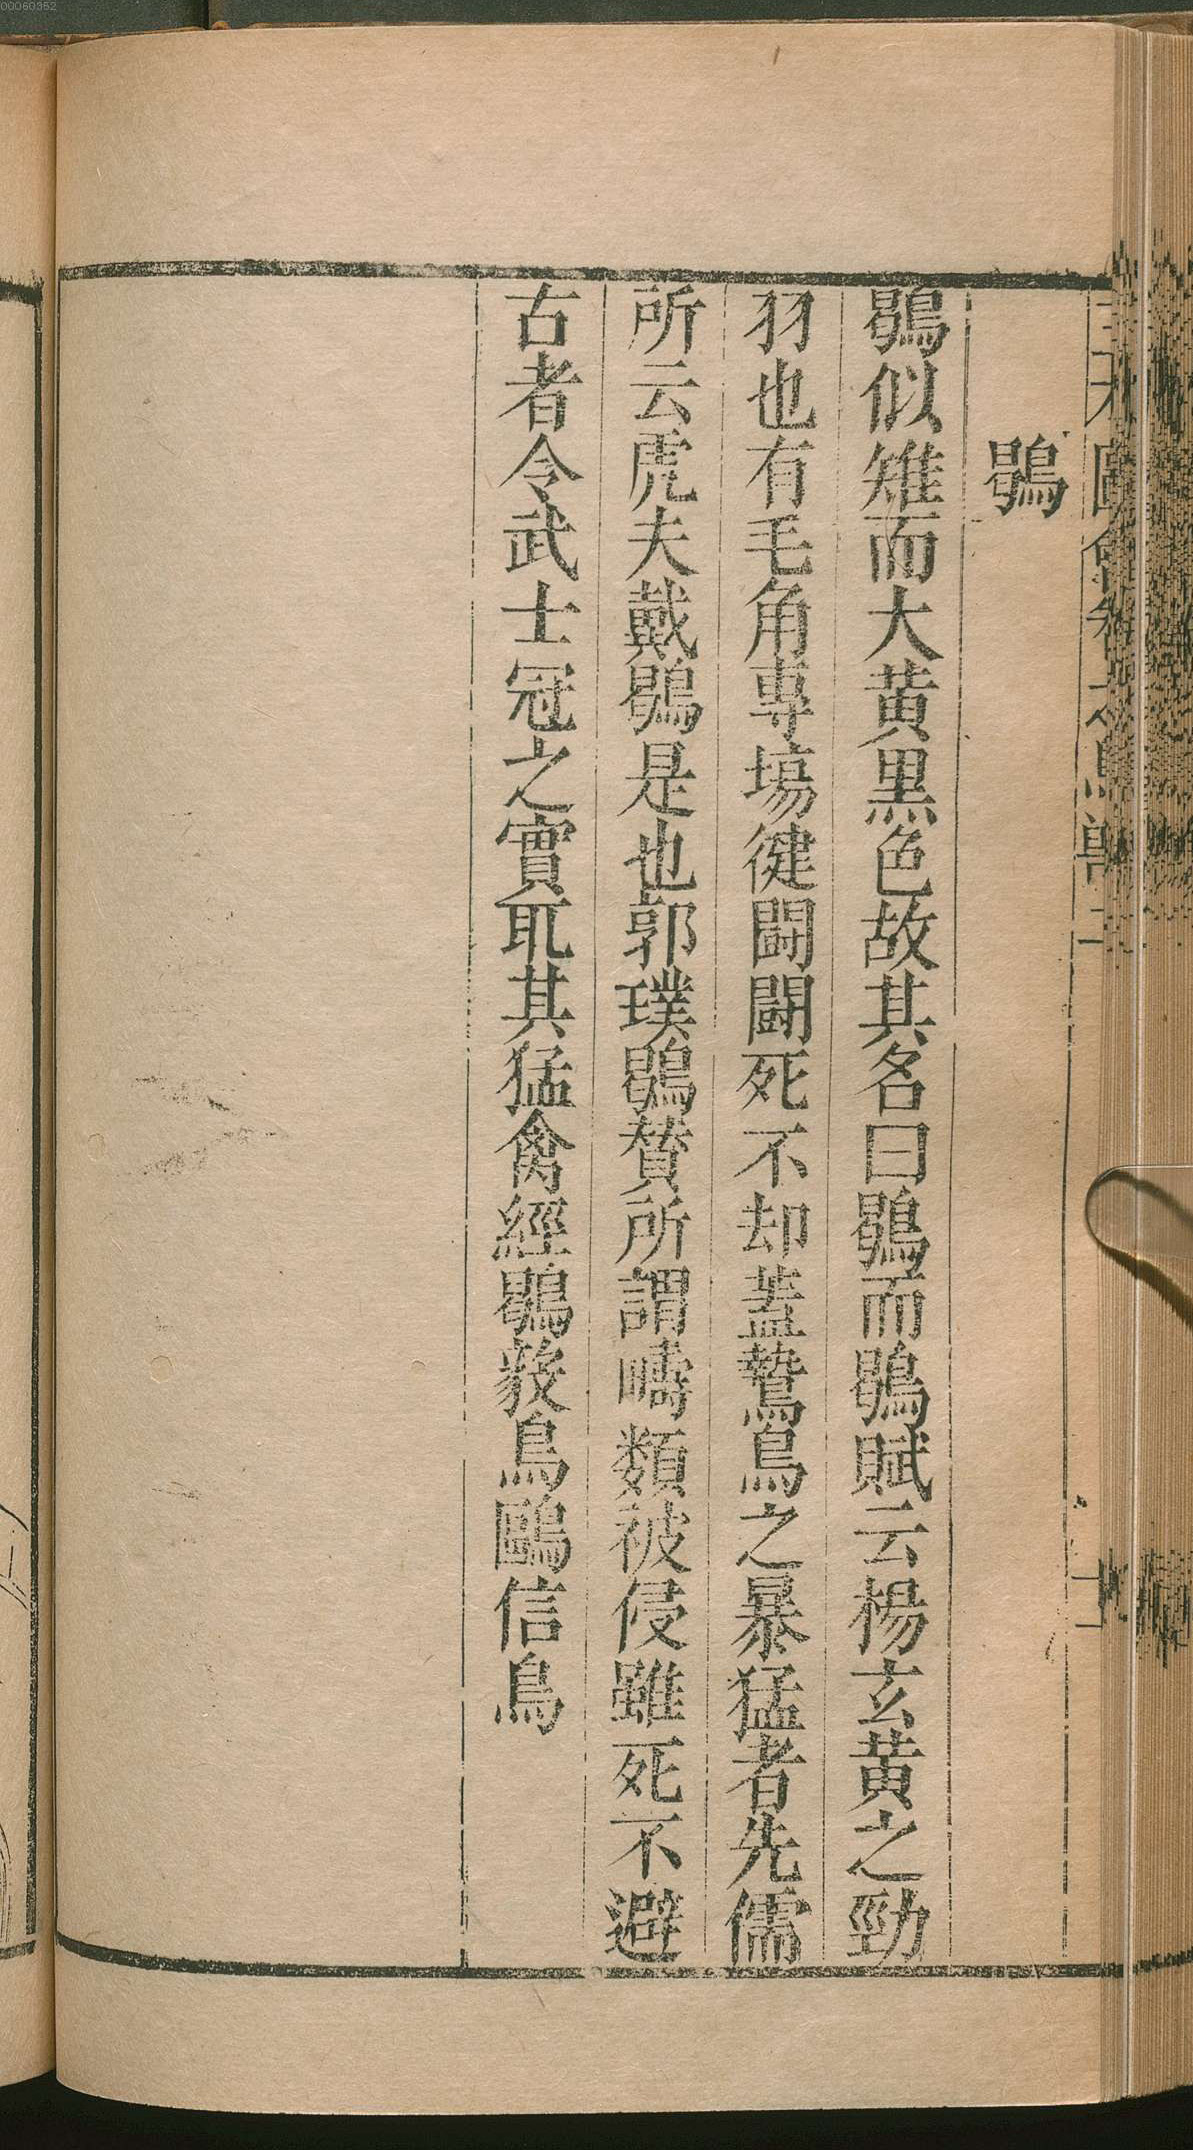 00060352
鶡
鶡似雉而大黃黑色故其名曰鶡而鶡賦云楊玄黃之勁
羽也有毛角專塲健鬪鬪死不却葢鷙鳥之暴猛者先儒
所云虎夫戴鶡是也郭璞鶡賛所謂疇類被侵雖死不避
古者令武士冠之實取其猛禽經鶡毅鳥鷗信鳥